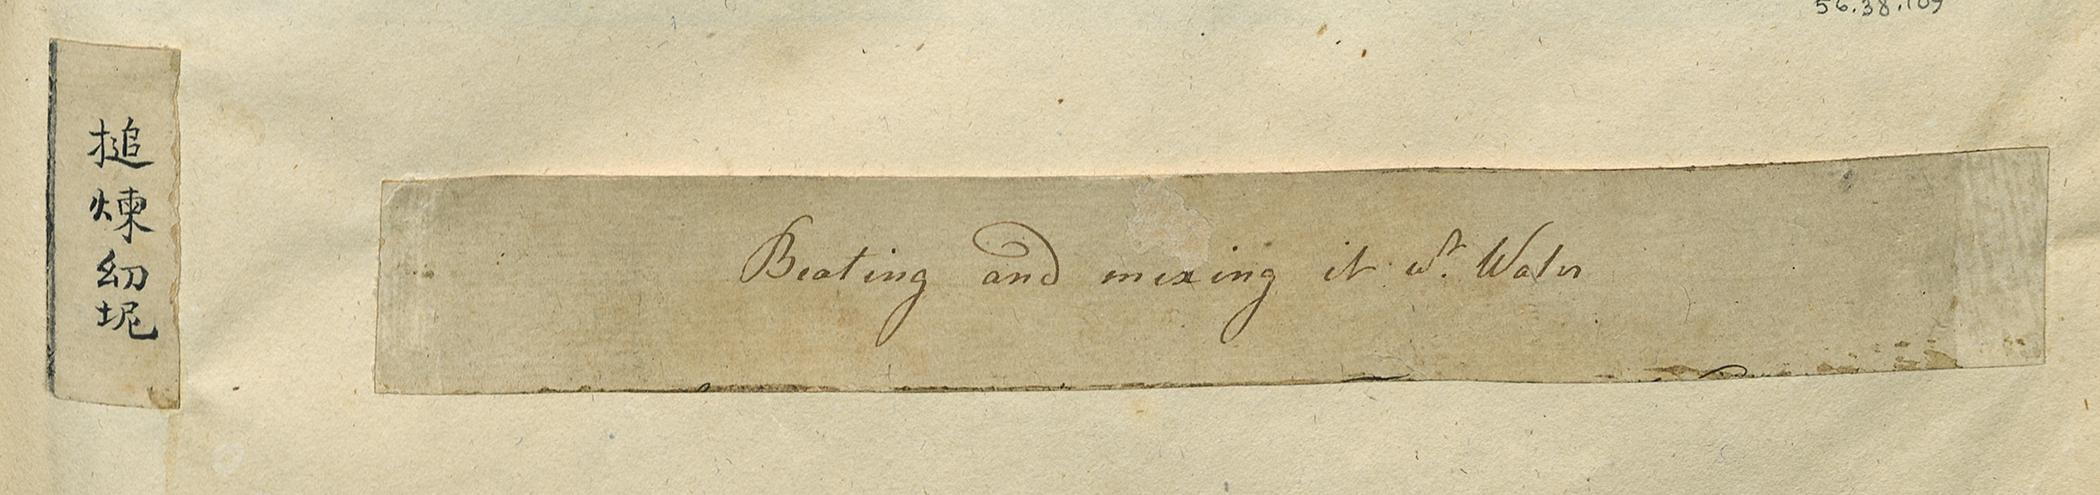 56.38.109
槌煉幼坭
Beating and mixing it wt. Water